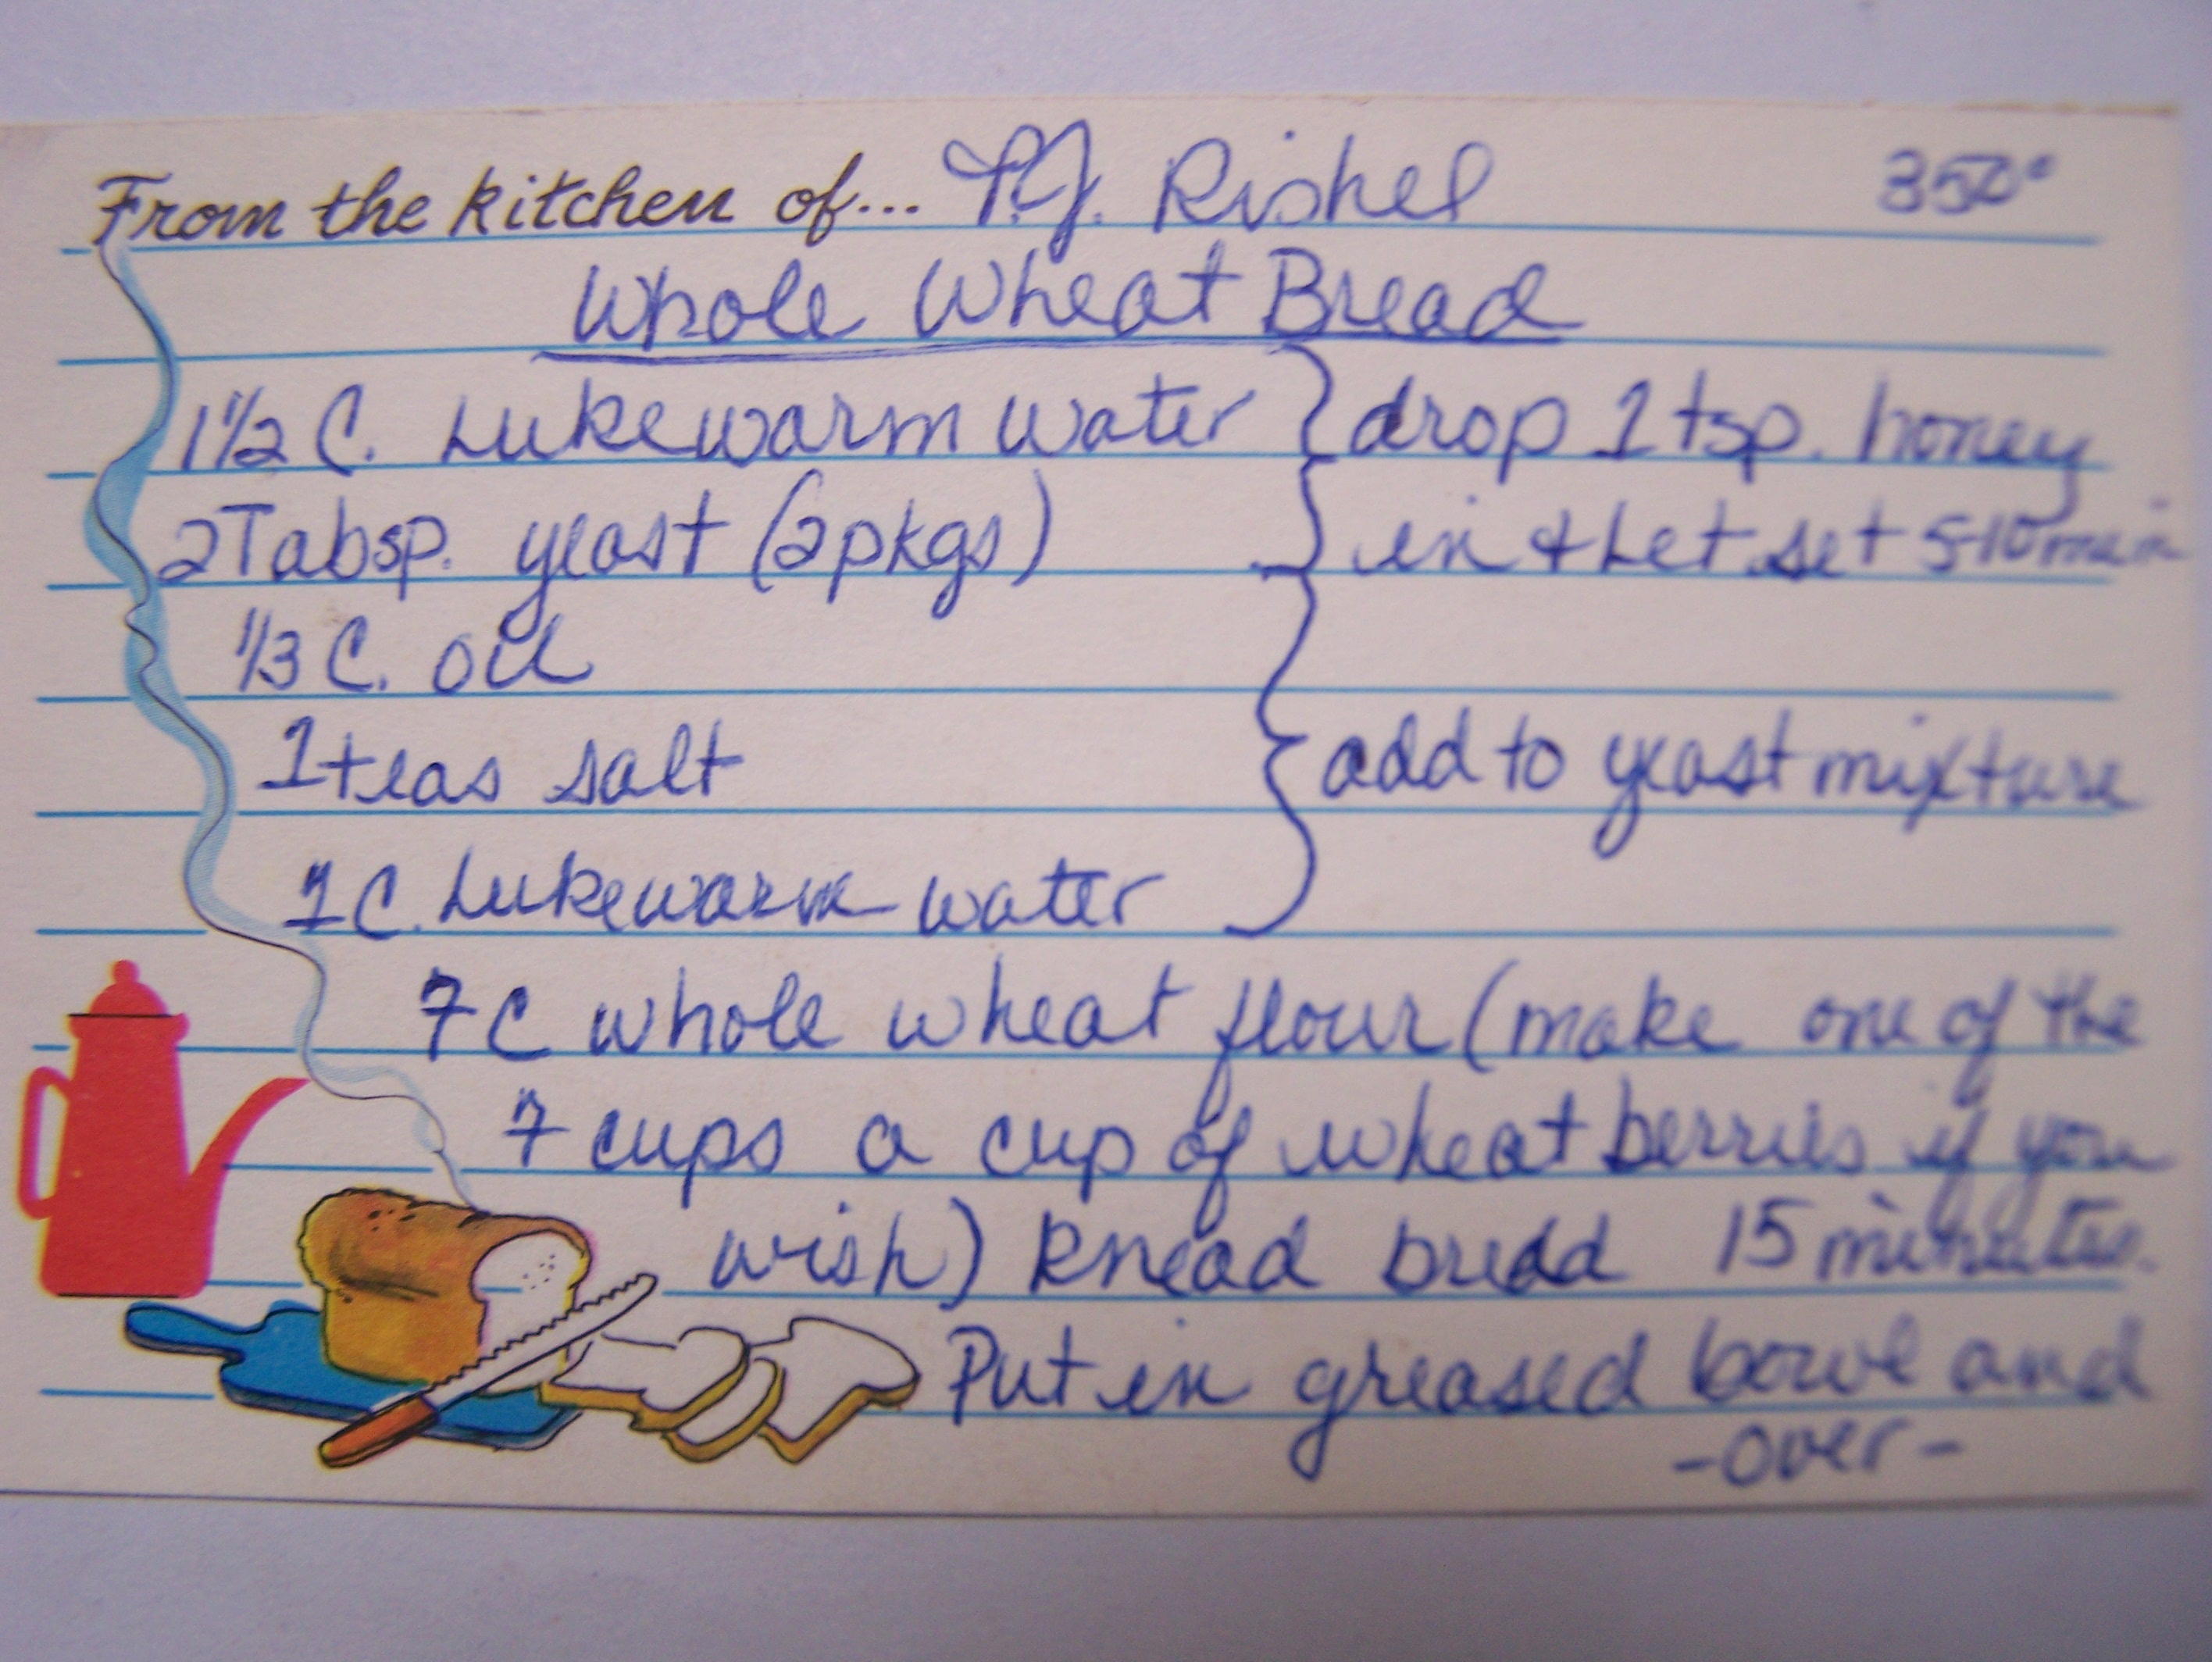 From the kitchen of... P.J. Rishel 350°
Whole Wheat Bread
1 1/2 C. Lukewarm water } drop 1 tsp. honey
2 Tabsp. yeast (2 pkgs) } in & Let set 5-10 min
1/3 C. oil
1 teas salt } add to yeast mixture
1 C. Lukewarm water
7 C whole wheat flour (make one of the
7 cups a cup of wheat berries if you
wish) Knead bread 15 minutes.
Put in greased bowl and
-over-